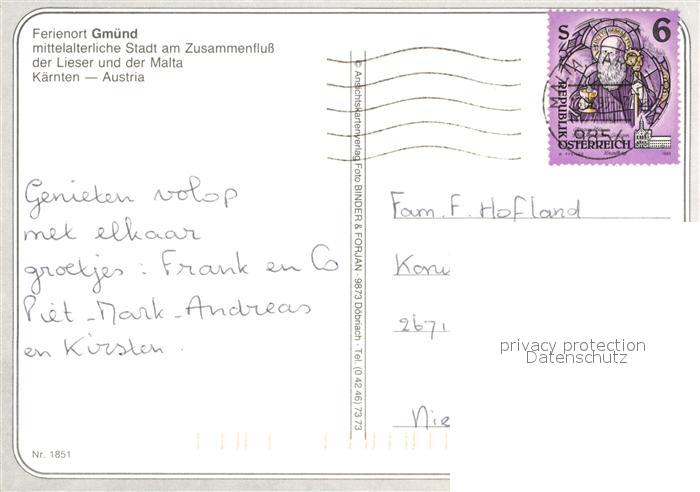 Ferienort Gmünd
mittelalterliche Stadt am Zusammenfluß
der Lieser und der Malta
Kärnten — Austria
Genieten volop
met elkaar
groetjes : Frank en Co
Piet - Mark - Andreas
en Kirsten .
Nr. 1851
© Ansichtskartenverlag Foto BINDER & FORJAN · 9873 Döbriach · Tel. (0 42 46) 73 73
S 6
REPUBLIK
ÖSTERREICH
MALTA
9854
Fam. F. Hofland
Koni
2671
Nie
privacy protection
Datenschutz